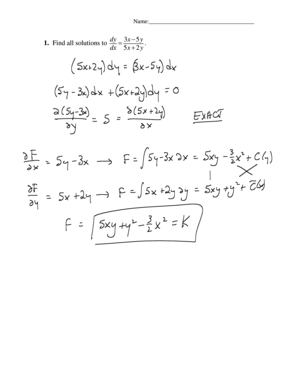 Name:
1. Find all solutions to dy/dx = (3x−5y)/(5x+2y).
(5x+2y)dy = (3x−5y)dx
(5y−3x)dx + (5x+2y)dy = 0
∂(5y−3x)/∂y = 5 = ∂(5x+2y)/∂x EXACT
∂F/∂x = 5y−3x → F = ∫5y−3x ∂x = 5xy − 3/2 x² + C(y)
∂F/∂y = 5x+2y → F = ∫5x+2y ∂y = 5xy + y² + C̃(x)
F = 5xy + y² − 3/2 x² = K